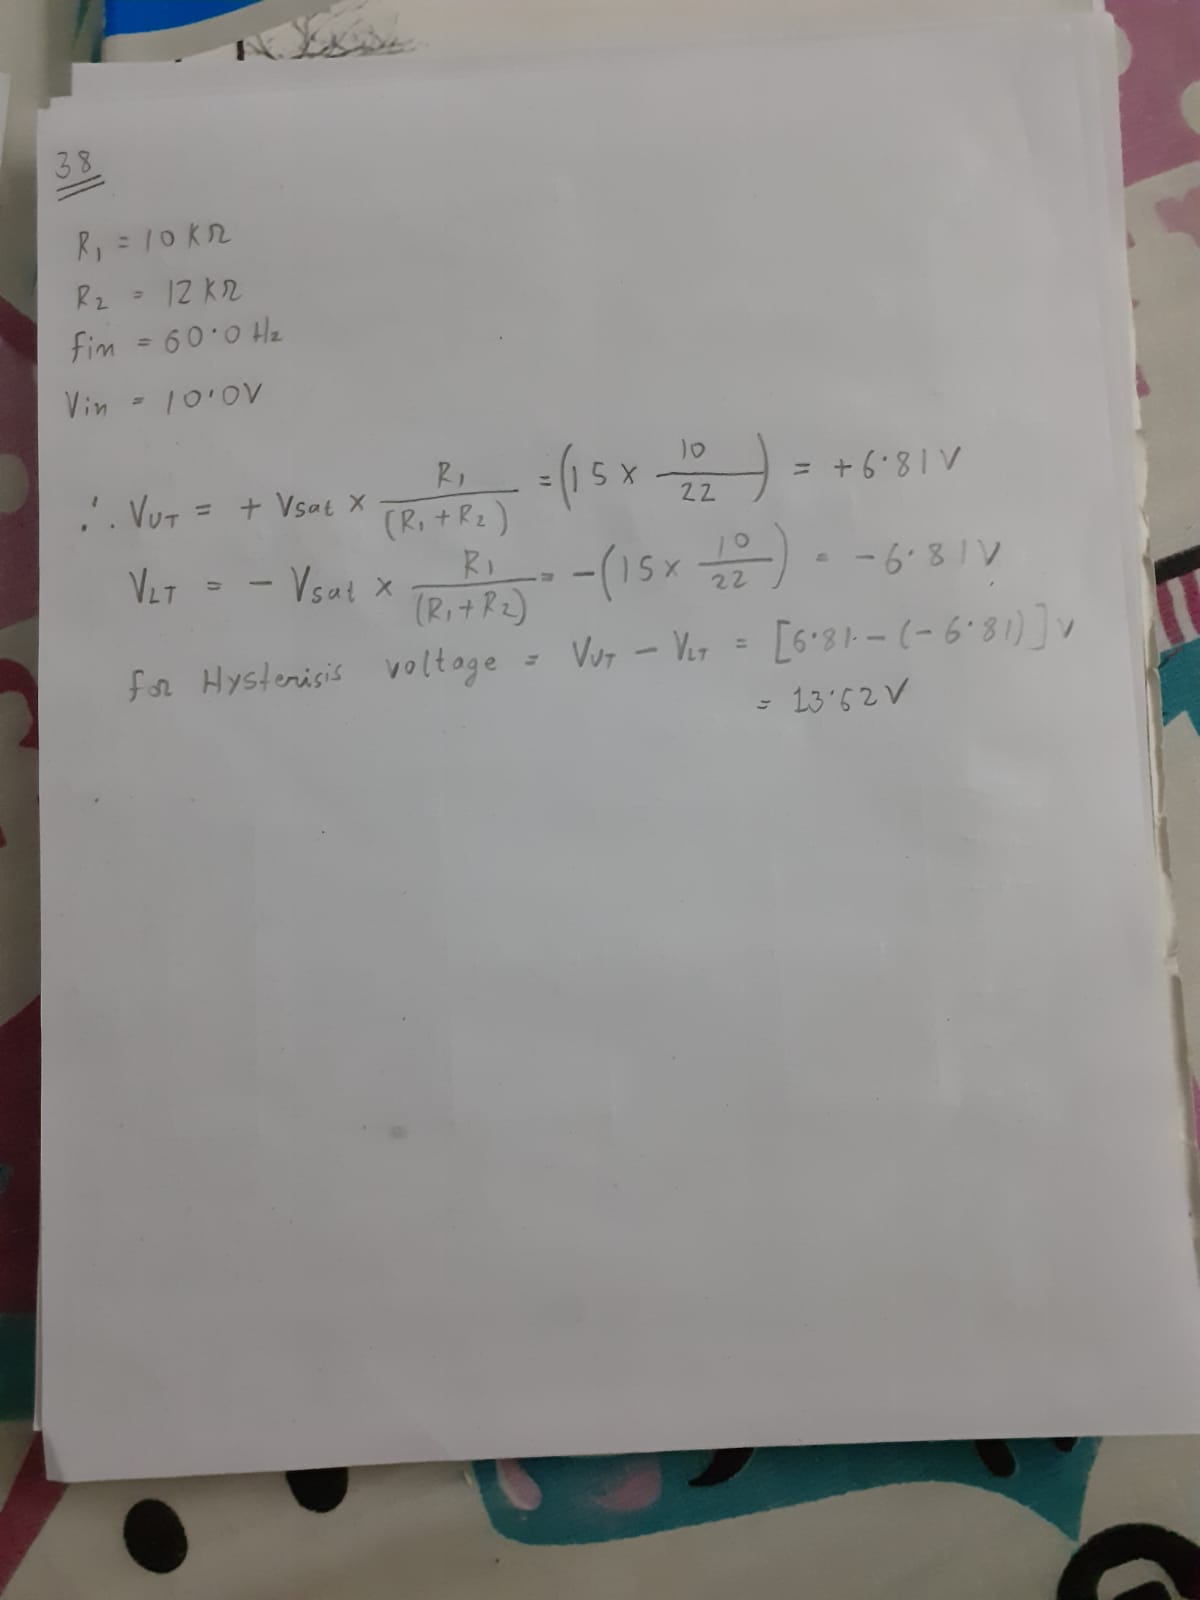 38
R₁ = 10 KΩ
R₂ = 12 KΩ
fin = 60.0 Hz
Vin = 10.0V
∴ V_UT = + Vsat × R₁/(R₁ + R₂) = (15 × 10/22) = +6.81V
V_LT = - Vsat × R₁/(R₁ + R₂) = -(15 × 10/22) = -6.81V
for Hysterisis voltage = V_UT - V_LT = [6.81 - (-6.81)] V
= 13.62V